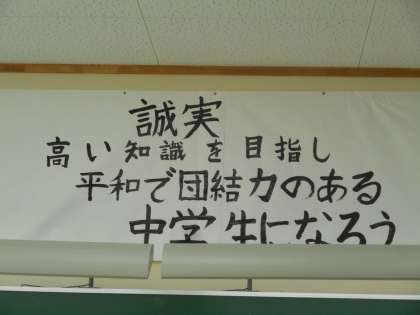 誠実
高い知識を目指し
平和で団結力のある
中学生になろう